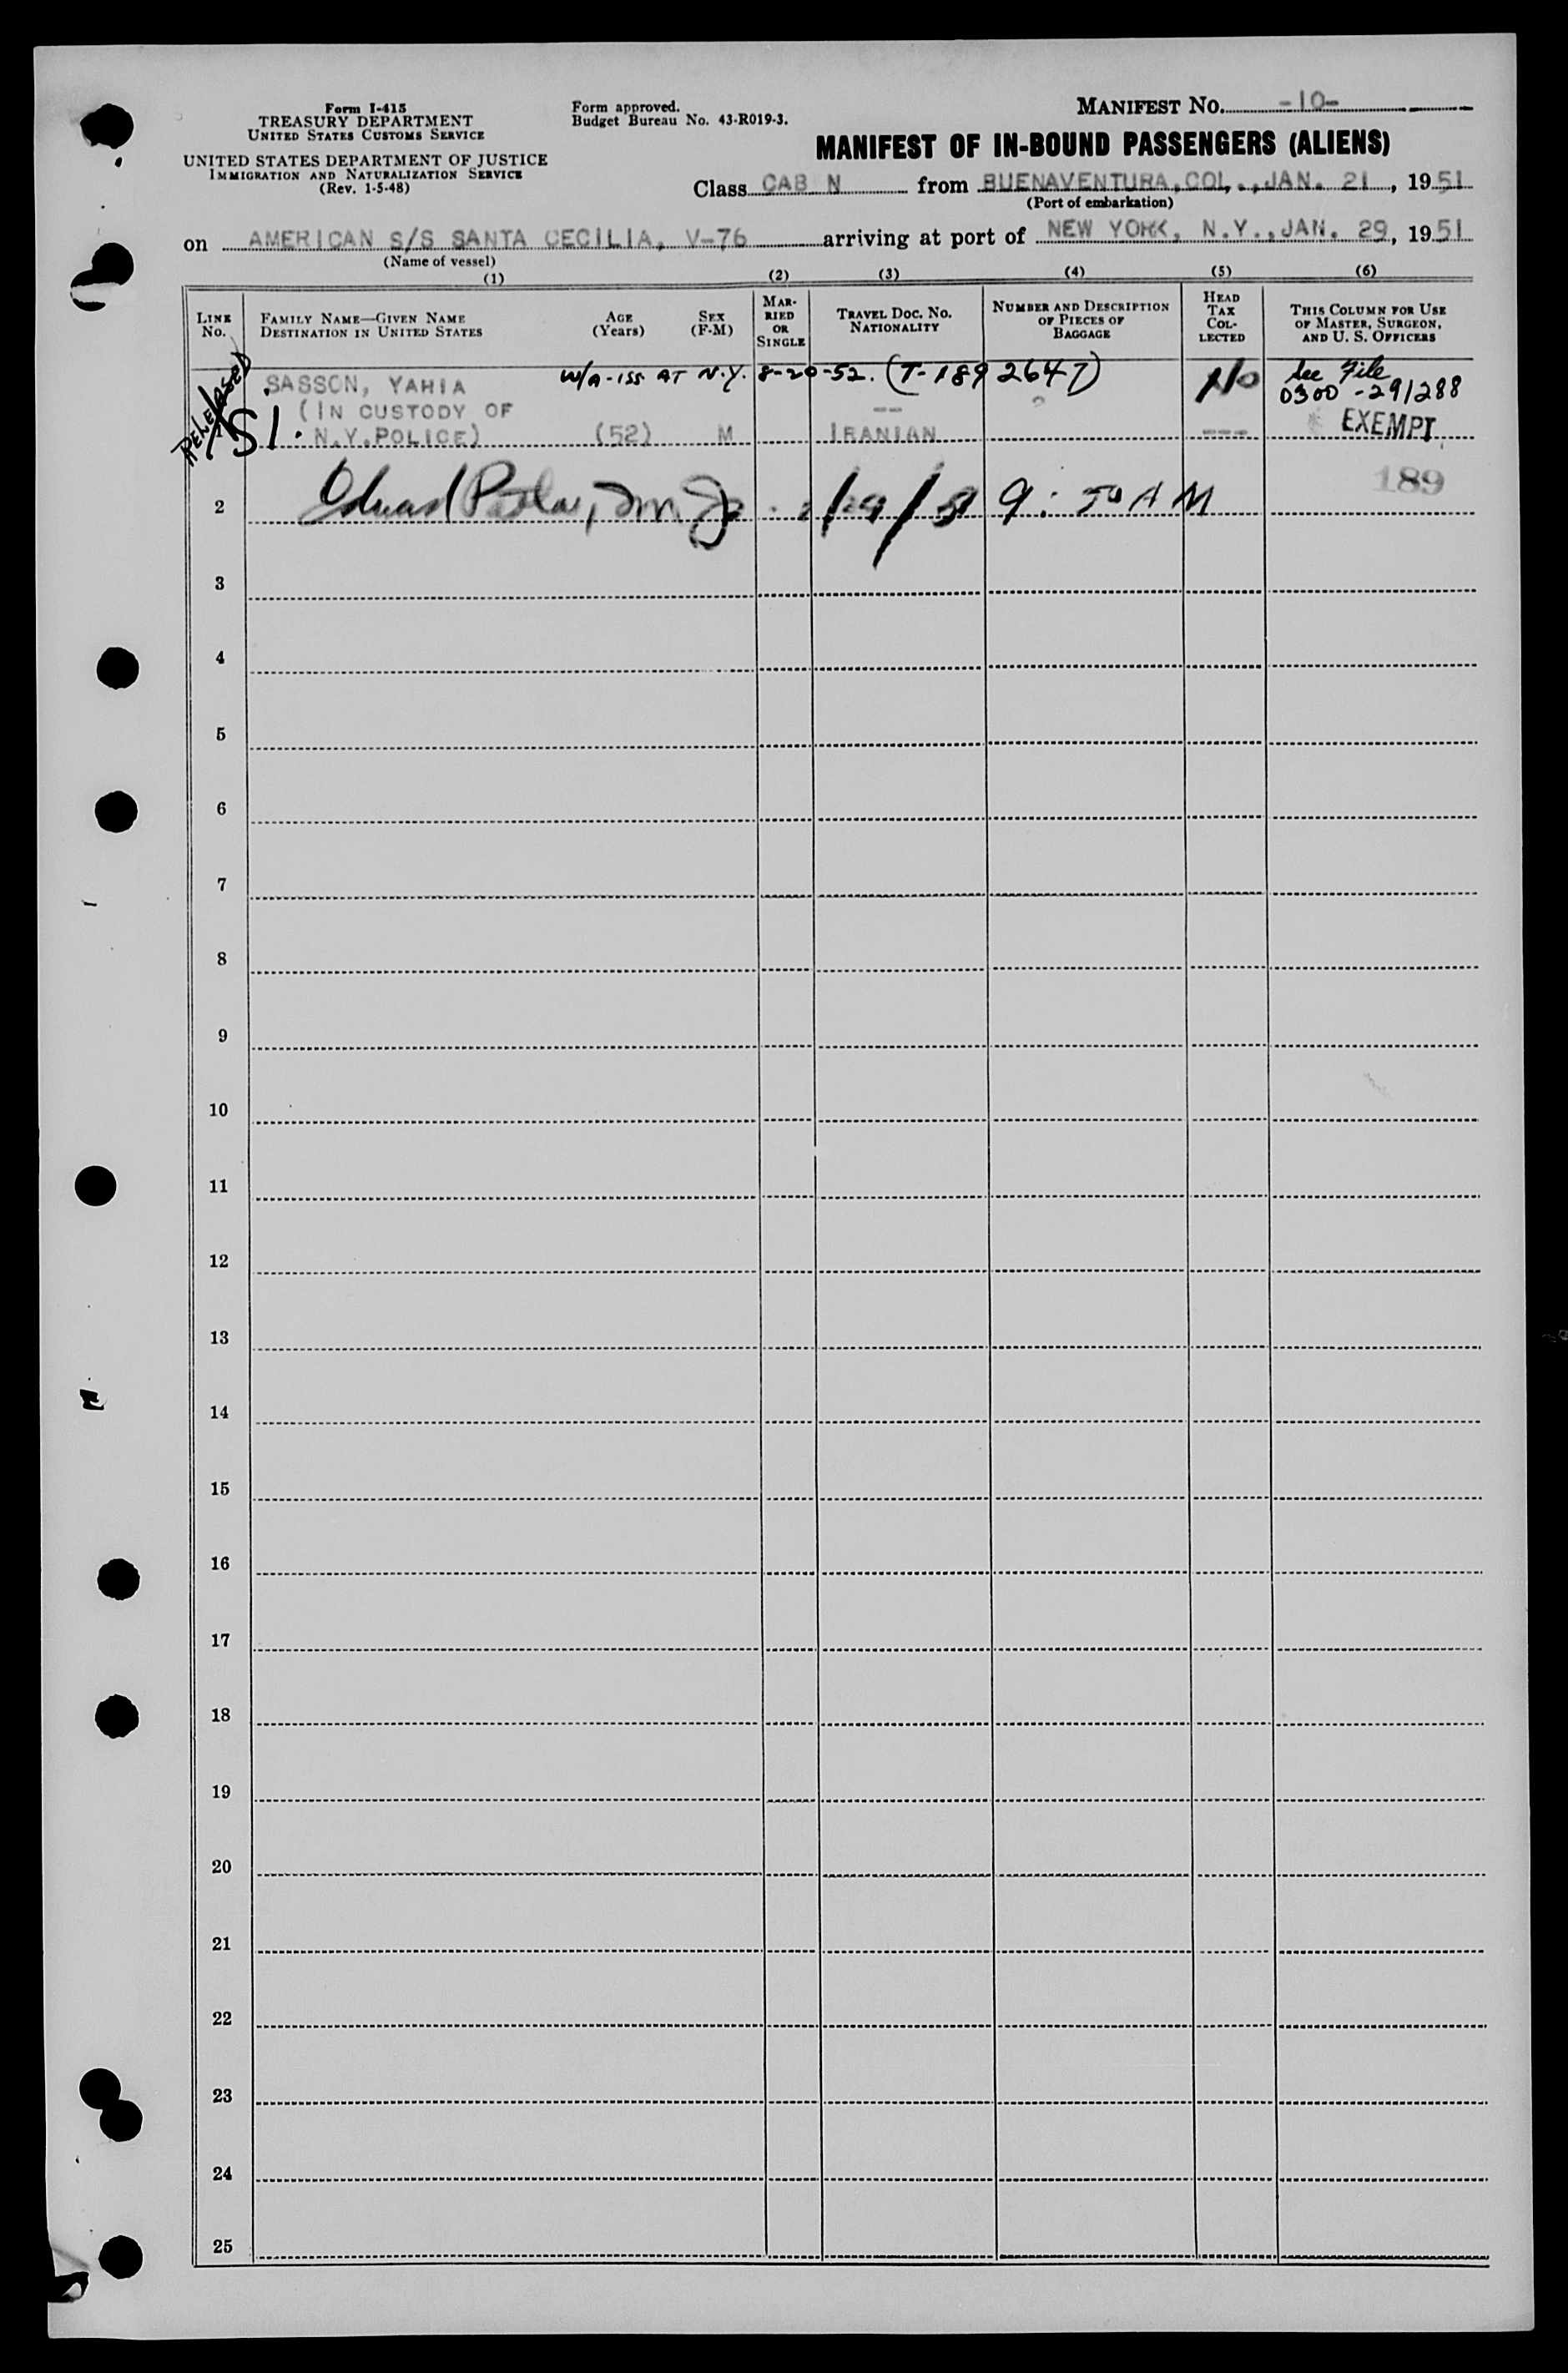 Form I-415
TREASURY DEPARTMENT
UNITED STATES CUSTOMS SERVICE
UNITED STATES DEPARTMENT OF JUSTICE
IMMIGRATION AND NATURALIZATION SERVICE
(Rev. 1-5-48)
Form approved.
Budget Bureau No. 43-R019-3.
MANIFEST NO. -10-
MANIFEST OF IN-BOUND PASSENGERS (ALIENS)
Class CAB N from BUENAVENTURA, COL., JAN. 21, 1951
(Port of embarkation)
on AMERICAN S/S SANTA CECILIA, V-76 arriving at port of NEW YORK, N.Y., JAN. 29, 1951
(Name of vessel)
(1) (2) (3) (4) (5) (6)
LINE NO.
FAMILY NAME—GIVEN NAME
DESTINATION IN UNITED STATES
AGE
(Years)
SEX
(F-M)
MARRIED OR SINGLE
TRAVEL DOC. NO.
NATIONALITY
NUMBER AND DESCRIPTION OF PIECES OF BAGGAGE
HEAD TAX COLLECTED
THIS COLUMN FOR USE OF MASTER, SURGEON, AND U. S. OFFICERS
RELEASED
W/A-ISS AT N.Y. 8-20-52. (T-1892647)
No
See File
0300-291288
SASSON, YAHIA
(IN CUSTODY OF
N.Y.POLICE) (52) M
--
IRANIAN
---
EXEMPT
SI
189
2 /29/51 9: AM
3
4
5
6
7
8
9
10
11
12
13
14
15
16
17
18
19
20
21
22
23
24
25